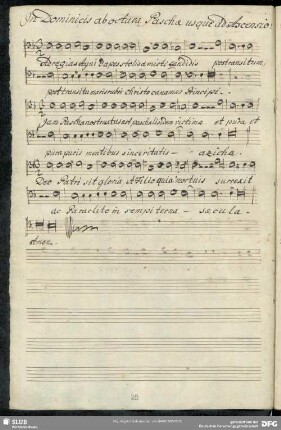 In Dominicis ab octava Pascha usque ad Ascensio:
Ad regias agni dapes stolis amicti candidis post transitum
post transitum maris rubri Christo canamus Principi.
Jam Pascha nostrum est paschalis idem victima et pura et
pura puris mentibus sinceritatis - azicha.
Deo Patri sit gloria et Filio qui a mortuis surrexit
ac Paraclito in sempiterna - sæcula.
Amen.
SLUB
DFG